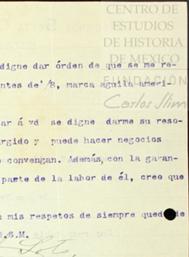 CENTRO DE
ESTUDIOS
DE HISTORIA
DE MEXICO
FUNDACIÓN
Carlos Slim
digne dar órden de que se me re-
ntes de /B, marca aguila ameri-
ar á vd se digne darme su reso-
rgido y puede hacer negocios
convengan. Además, con la garan-
parte de la labor de él, creo que
mis respetos de siempre qued de
S.M.